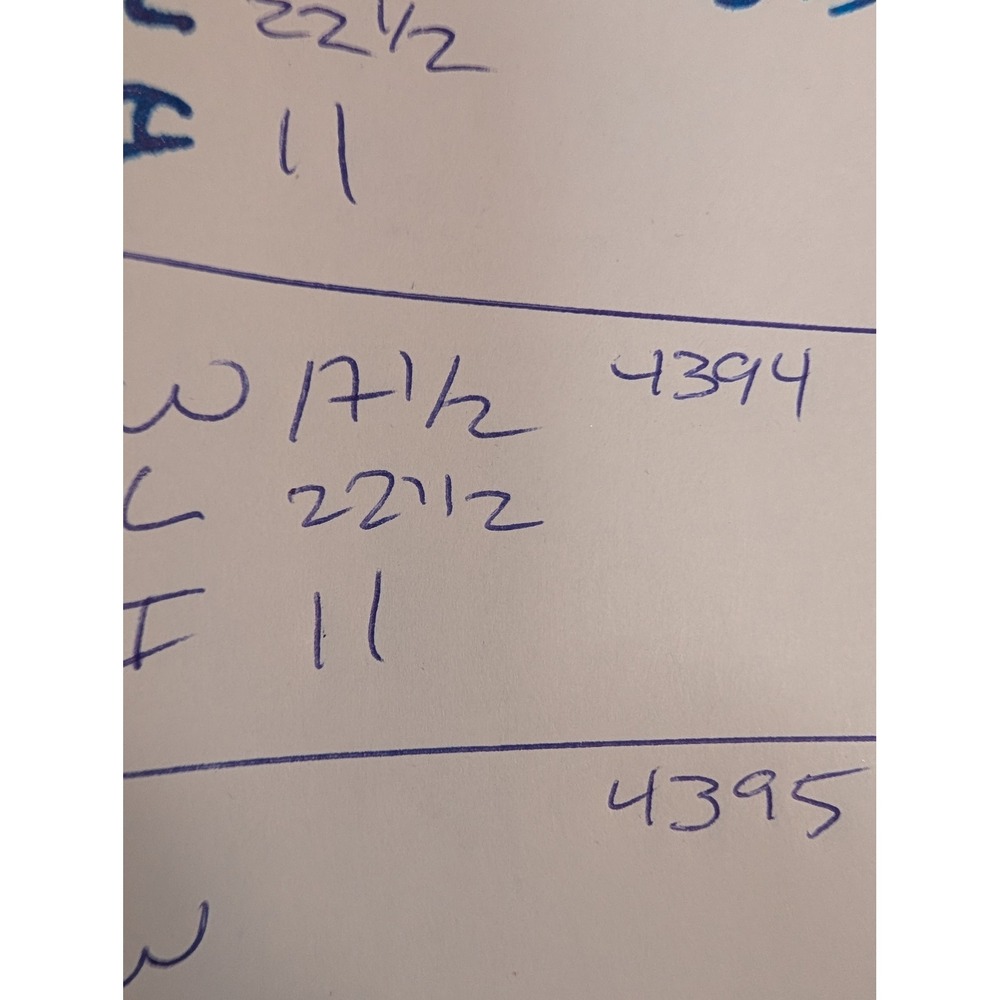 22 1/2
H 11
W 17 1/2 4394
L 22 1/2
I 11
4395
W